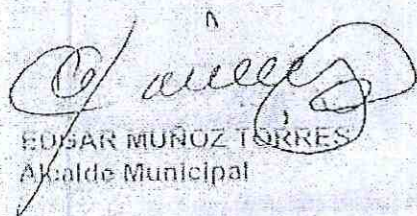 EDGAR MUÑOZ TORRES
Alcalde Municipal